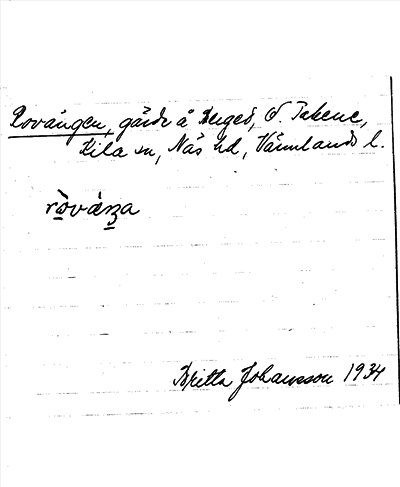 Rovången, gärde å Berget, S. Takene,
Kila sn, Näs hd, Värmlands l.
ròvåŋa
Britta Johansson 1934